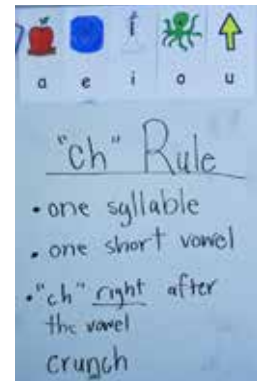 a e i o u
"ch" Rule
• one syllable
• one short vowel
• "ch" right after
the vowel
crunch